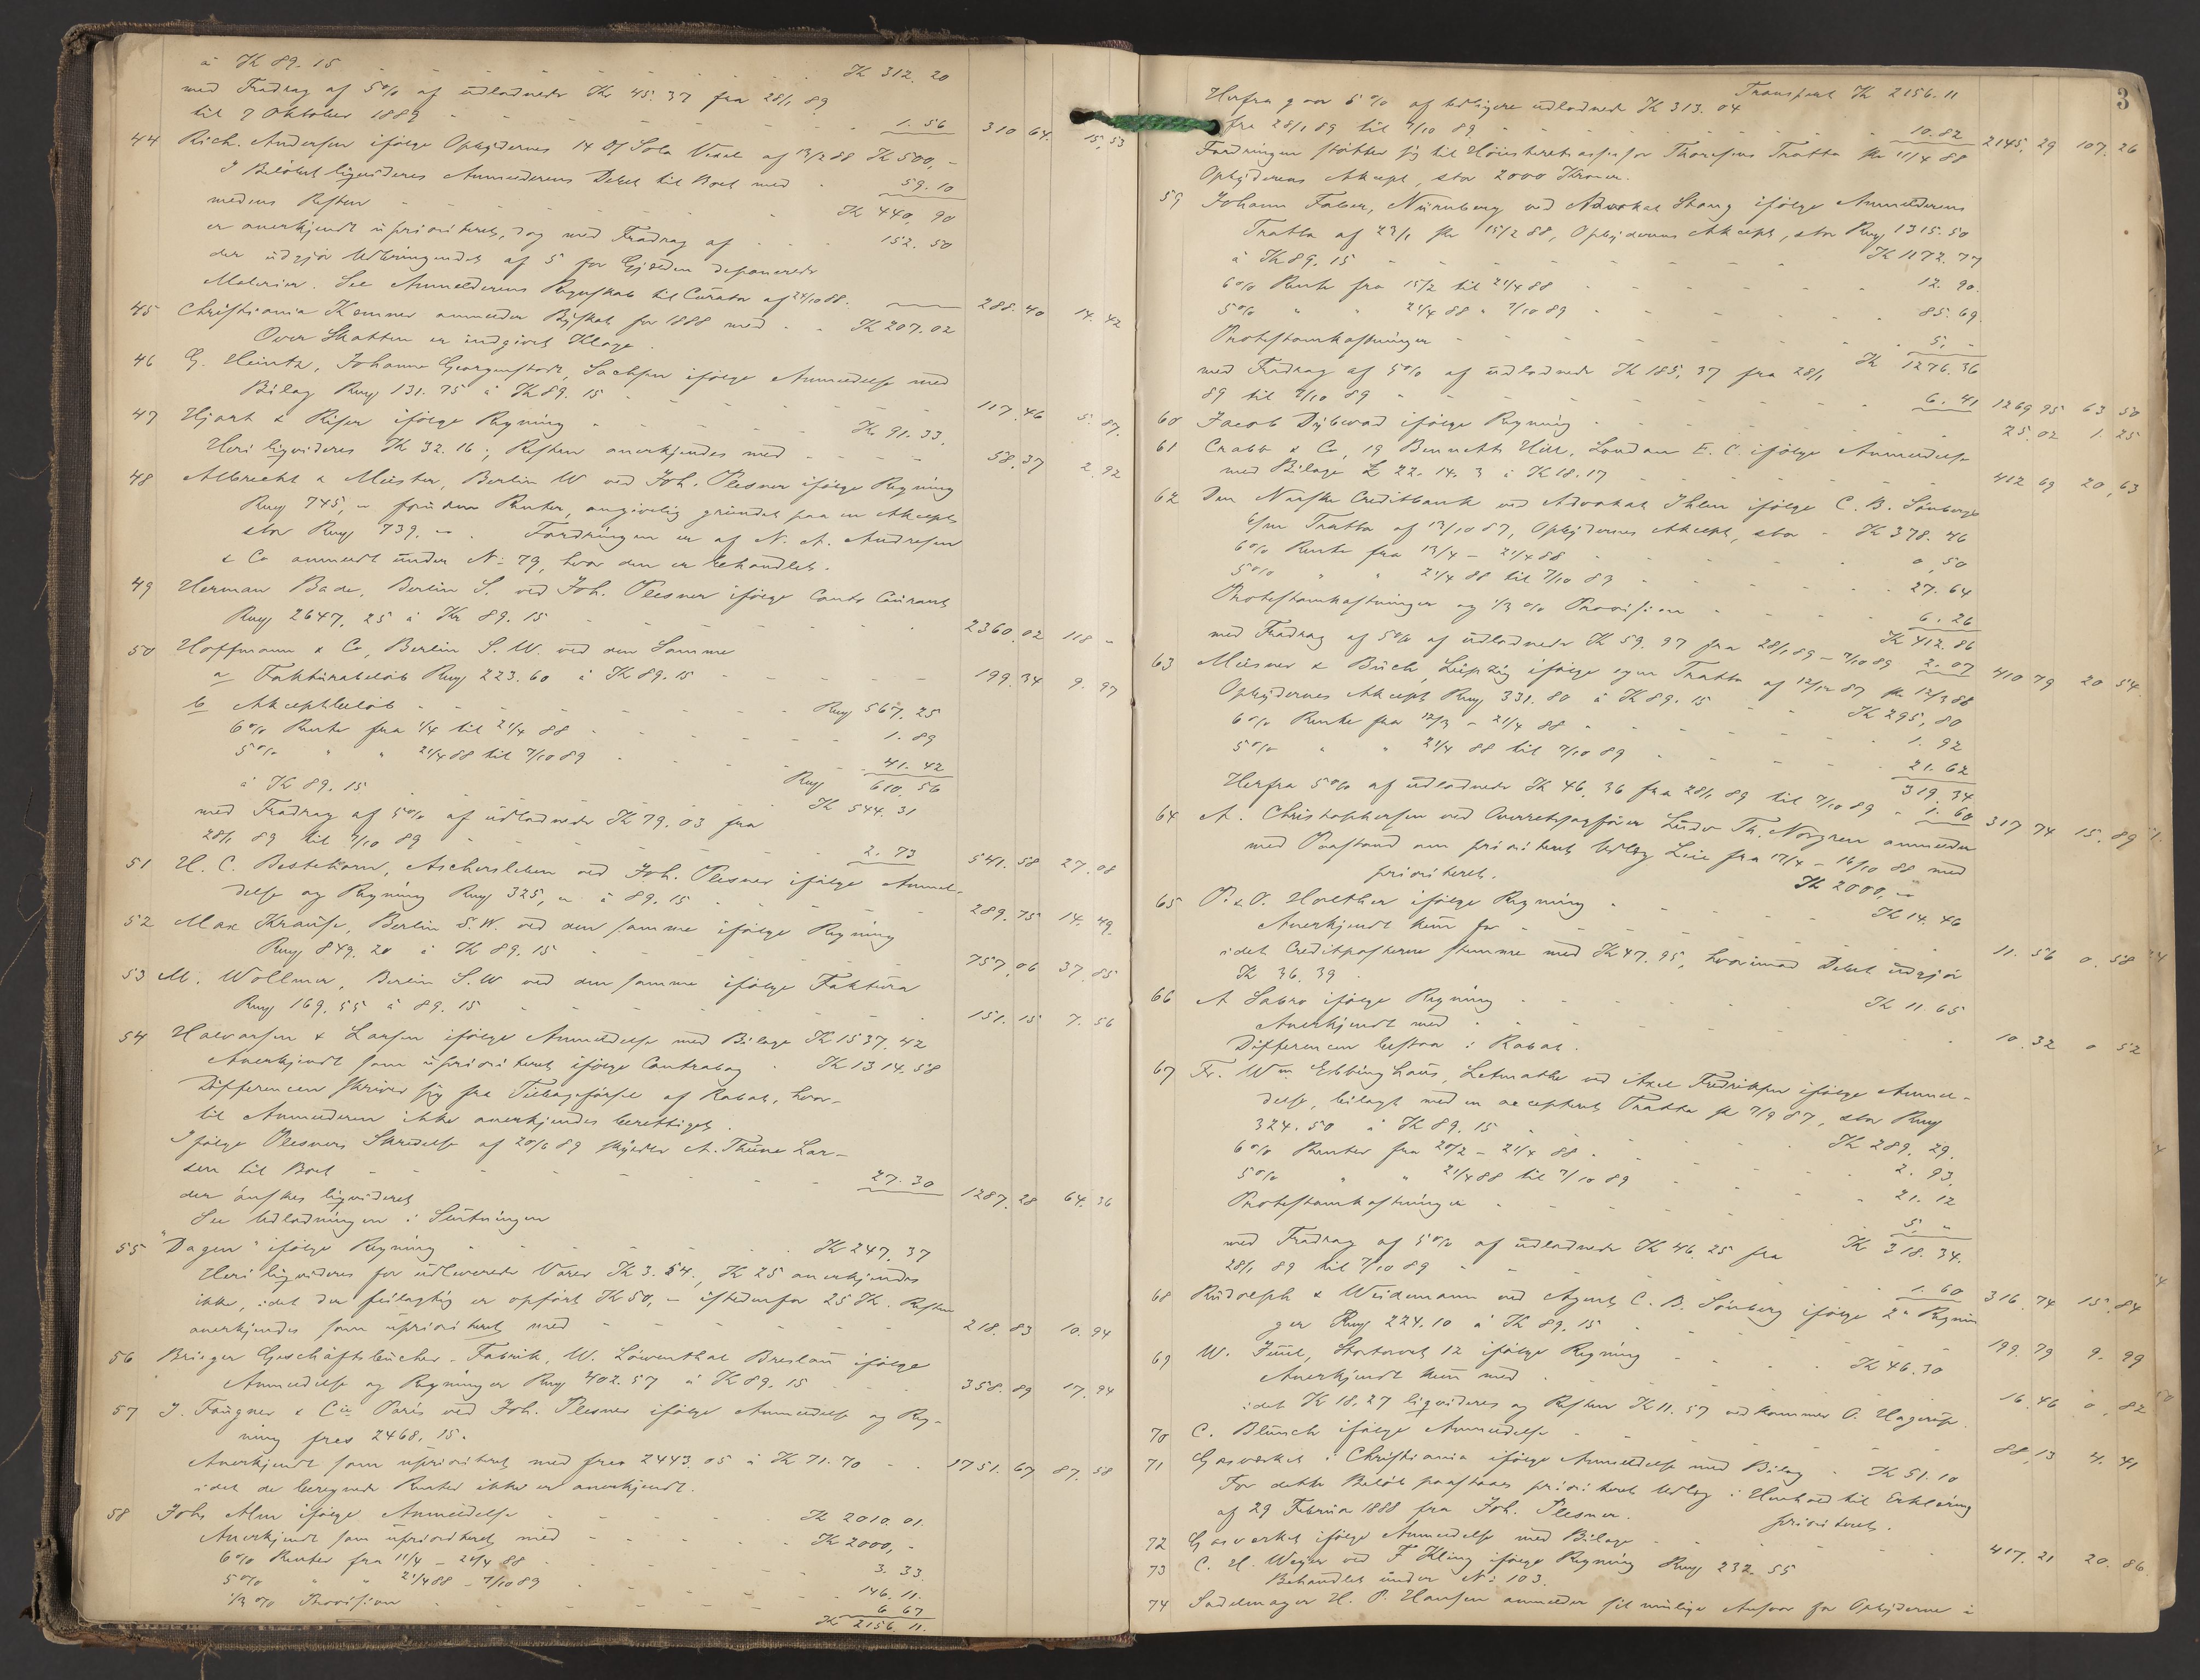 à Kr 89. 15 - - - - - Kr 312. 20
med Fradrag af 5% af udlodnede Kr 45. 37 fra 28/1 89
til 7 Oktober 1889 - - - - - 1. 56 310 64. 15,53
44 Rich. Andersen ifølge Opbydernes 14 Df Sola Vexel af 13/2 88 Kr 500,-
I Beløbet liqvideres Anmelderens Debet til Boet med 59. 10
medens Resten - - - - - Kr 440, 90
er anerkjendt uprioriteret, dog med Fradrag af - - 152. 50
der udgjør Udbringendet af 5 for Gjælden deponerede
Materier. See Anmelderens Regnskab til Curator af 24/10 88. 288. 40 14. 42
45 Christiania Kemner anmelder Byskat for 1888 med - - Kr 207. 02
Over Skatten er indgivet Klage.
46 G. Heintz, Johann Georgenstadt, Sachsen ifølge Anmeldelse med
Bilag Rmq 131. 75 à Kr 89. 15 - - - - 117. 46 5. 87.
47 Hjort & Riser ifølge Regning - - - - Kr 91. 33.
Heri liqvideres Kr 32. 16; Resten anerkjendes med - - - 58. 37 2. 92
48 Albrecht & Meister, Berlin W ved Joh. Plesner ifølge Regning
Rmq 745, " foruden Renter, angivelig grundet paa en Akcept
stor Rmq 739. - . Fordringen er af N. A. Andresen
& Co anmeldt under No 79, hvor den er behandlet.
49 Herman Bade, Berlin S. ved Joh. Plesner ifølge Conto Courant
Rmq 2647, 25 à Kr 89. 15 - - - - 2360. 02 118 "
50 Hoffmann & Co, Berlin S. W. ved den Samme
a Fakturabeløb Rmq 223. 60 à Kr 89. 15 - - - - 199. 34 9. 97
b Akceptbeløb - - - - Rmq 567. 25
6% Rente fra 1/4 til 21/4 88 - - - - 1. 89
5% " " 21/4 88 til 7/10 89 - - - - 41. 42
Rmq 610. 56
à Kr 89. 15 - - - - Kr 544. 31
med Fradrag af 5% af udlodnede Kr 79. 03 fra
28/1 89 til 7/10 89 - - - - 2. 73 541. 58 27. 08
51 H. C. Bestehorn, Aschersleben ved Joh. Plesner ifølge Anmel-
delse og Regning Rmq 325, " à 89. 15 - - - - 289. 75 14. 49.
52 Max Krause, Berlin S. W. ved den samme ifølge Regning
Rmq 849. 20 à Kr 89. 15 - - - - 757, 06 37. 85
53 M. Wollmer, Berlin S. W ved den samme ifølge Faktura
Rmq 169, 55 à 89. 15 - - - - 151. 15 7. 56
54 Halvorsen & Larsen ifølge Anmeldelse med Bilage Kr 1537. 42
Anerkjendt som uprioriteret ifølge Contrabog - Kr 1314. 58
Differencen skriver sig fra Tilbageførsel af Rabat, hvor-
til Anmelderen ikke anerkjendes berettiget.
Ifølge Plesners Skrivelse af 20/6 89 skylder A. Thune Lar-
sen til Boet - - - - 27. 30 1287. 28 64. 36
der ønskes liqvideret
See Udlodningen i Slutningen
55 "Dagen" ifølge Regning - - - - Kr 247. 37
Heri liqvideres for udleverede Varer Kr 3. 54., Kr 25 anerkjendes
ikke, idet der feilagtig er opført Kr 50, - istedenfor 25 Kr. Resten
anerkjendes som uprioriteret med - - - - 218. 83 10. 94
56 Brieger Geschäftsbücher-Fabrik, W. Löwenthal Breslau ifølge
Anmeldelse og Regninger Rmq 402. 57 à Kr 89. 15 - - 358. 89 17. 94
57 J. Faugner & Cie Paris ved Joh. Plesner ifølge Anmeldelse og Reg-
ning frcs 2468. 15.
Anerkjendt som uprioriteret med frcs 2443. 05 à Kr 71. 70 - - 1751. 67 87. 58
idet de beregnede Renter ikke er anerkjendt.
58 Johs Alm ifølge Anmeldelse - - - - Kr 2010. 01.
Anerkjendt som uprioriteret med - - - - Kr 2000, -
6% Renter fra 11/4 - 21/4 88 - - - - 3. 33.
5% " " 21/4 88 - 7/10 89 - - - - 146. 11.
1/3 % Provision - - - - 6 67
Kr 2156 11.
3
Transport Kr 2156. 11
Herfra gaar 5% af tidligere udlodnede Kr 313. 04
fra 28/1 89 til 7/10 89 - - - - 10. 82 2145. 29 107. 26
Fordringen støtter sig til Høiesteretsassessor Thoresens Tratta pr 11/4 88
Opbyderens Akcept, stor 2000 Kroner.
59 Johann Faber, Nürnberg ved Advokat Stang ifølge Anmelderens
Tratta af 23/1 pr 15/2 88, Opbydernes Akcept, stor Rmq 1315. 50
à Kr 89. 15 - - - - Kr 1172. 77
6% Rente fra 15/2 til 21/4 88 - - - - 12. 90.
5% " " 21/4 88 " 7/10 89 - - - - 85. 69.
Protestomkostninger - - - - 5. -
Kr 1276. 36
med Fradrag af 5% af udlodnede Kr 185, 37 fra 28/1
89 til 7/10 89 - - - - 6. 41 1269 95 63 50
60 Jacob Dybwad ifølge Regning - - - - 25. 02 1. 25
61 Crabb & Co, 19 Bennetts Hill, London E. C. ifølge Anmeldelse
med Bilage £ 22. 14. 3 à Kr 18. 17 - - - - 412 69 20, 63
62 Den Norske Creditbank ved Advokat Ihlen ifølge C. B. Sønbergs
egen Tratta af 13/10 87, Opbydernes Akcept, stor - Kr 378. 46
6% Rente fra 13/4 - 21/4 88 - - - - 0, 50
5% " " 21/4 88 til 7/10 89 - - - - 27. 64
Protestomkostninger og 1/3 % Provision - - - - 6. 26
Kr 412. 86
med Fradrag af 5% af udlodnede Kr 59. 97 fra 28/1 89 - 7/10 89 2. 07 410 79 20 54.
63 Meisner & Buch, Leipzig ifølge egen Tratta af 12/12 87 pr 12/3 88
Opbydernes Akcept Rmq 331. 80 à Kr 89. 15 - - Kr 295, 80
6% Rente fra 12/3 - 21/4 88 - - - - 1. 92
5% " " 21/4 88 til 7/10 89 - - - - 21. 62
319. 34
Herfra 5% af udlodnede Kr 46. 36 fra 28/1 89 til 7/10 89 - 1. 60 317 74 15. 89
64 A. Christophersen ved Overretssagfører Ludv Th. Norgren anmelder
med Paastand om prioriteret Udlæg Leie fra 17/4 - 16/10 88 med
prioriteret. Kr 2000, -
65 P. & O. Holther ifølge Regning - - - - Kr 14. 46
Anerkjendt kun for - - - - 11. 56 0. 58
idet Creditposterne stemme med Kr 47. 95, hvorimod Debet udgjør
Kr 36. 39.
66 A Sabro ifølge Regning - - - - Kr 11. 65
Anerkjendt med - - - - 10. 32 0 52
Differencen bestaar i Rabat.
67 Fr. Wm Ebbinghaus, Letmathe ved Axel Fredriksen ifølge Anmel-
delse, bilagt med en accepteret Tratta pr 7/9 87, stor Rmq
324. 50 à Kr 89. 15 - - - - Kr 289. 29.
6% Renter fra 20/2 - 21/4 88 - - - - 2. 93.
5% " " 21/4 88 til 7/10 89 - - - - 21. 12
Protestomkostninger - - - - 5. "
Kr 318. 34.
med Fradrag af 5% af udlodnede Kr 46. 25 fra
28/1 89 til 7/10 89 - - - - 1. 60 316. 74 15. 84
68 Rudolph & Weidemann ved Agent C. B. Sönberg ifølge 2de Regnin
ger Rmq 224. 10 à Kr 89. 15 - - - - 199. 79 9. 99
69 W. Juul, Stortorvet 12 ifølge Regning - - - - Kr 46. 30
Anerkjendt kun med - - - - 16. 46 0, 82
idet Kr 18. 27 liqvideres og Resten Kr 11. 57 vedkommer O. Hagerup.
70 C. Blunck ifølge Anmeldelse - - - - 88, 13 4. 41
71 Gasværket i Christiania ifølge Anmeldelse med Bilag - Kr 51. 10
For dette Beløb paastaaes prioriteret Udlæg i Henhold til Erklæring
af 29 Februar 1888 fra Joh. Plesner. prioriteret.
72 Gasverket ifølge Anmeldelse med Bilage - - - - 417. 21 20. 86
73 C. H. Weger ved F Kling ifølge Regning Rmq 232. 55
Behandlet under No 103.
74 Sadelmager H. P. Hansen anmelder sit mulige Ansvar for Opbyderne i